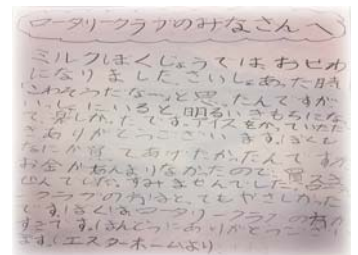 ロータリークラブのみなさんへ
ミルクぼくじょうでは、おせわ
になりました。さいしょあった時
こわそうだなーっと思ったんですが
いっしょにいると明るいきもちになっ
て、楽しかったです。アイスをかっていただ
きありがとうございます。ぼくも
なにか買ってあげたかったんですが
お金があんまりなかったので、買えま
せんでした。すみませんでした。
クラブの方はとてもやさしかった
です。ぼくはロータリークラブの方が
すきです。ほんとうにありがとうござい
ます。(エスターホームより